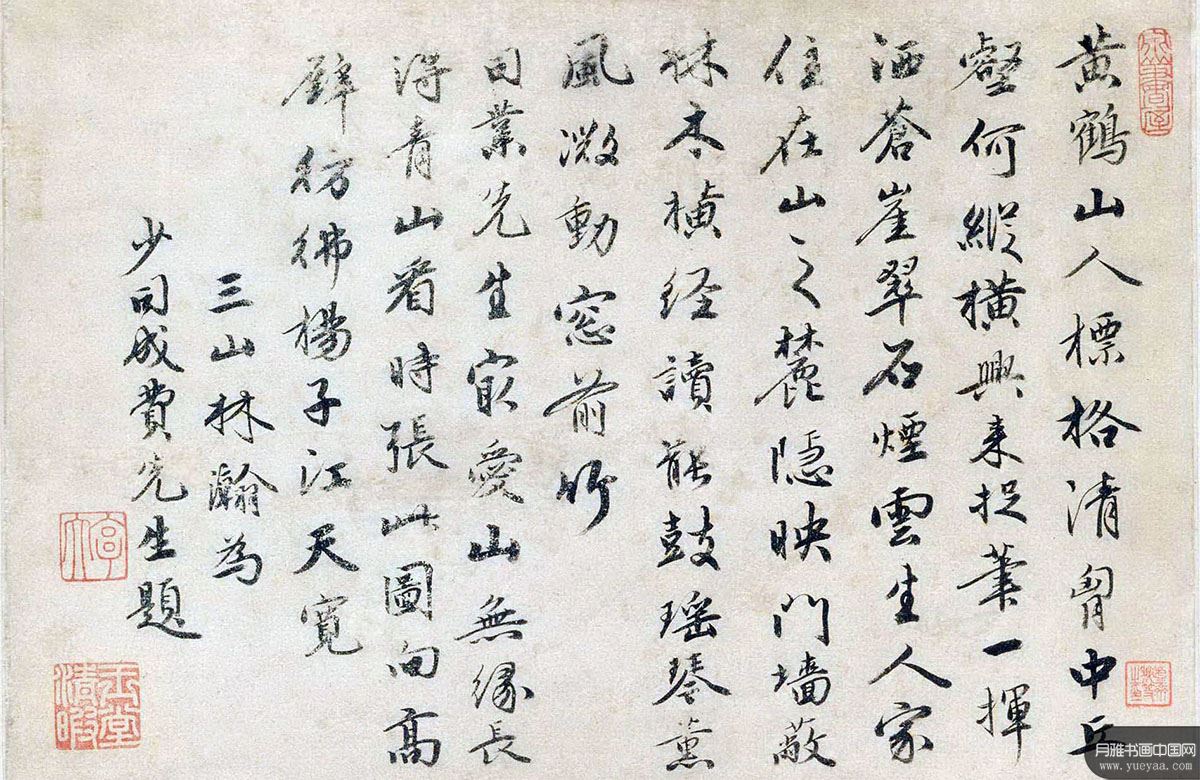 黄鶴山人標格清胷中丘
壑何縱橫興来捉筆一揮
洒蒼崖翠石煙雲生人家
住在山之麓隐映門墙蔽
林木横经讀罷鼓瑶琴薫
風微動窓前竹
司業先生㝡愛山無縁長
得青山看時張此圖向高
壁彷彿楊子江天寬
三山林瀚為
少司成費先生題
玉堂清暇
月雅书画中国网
www.yueyaa.com